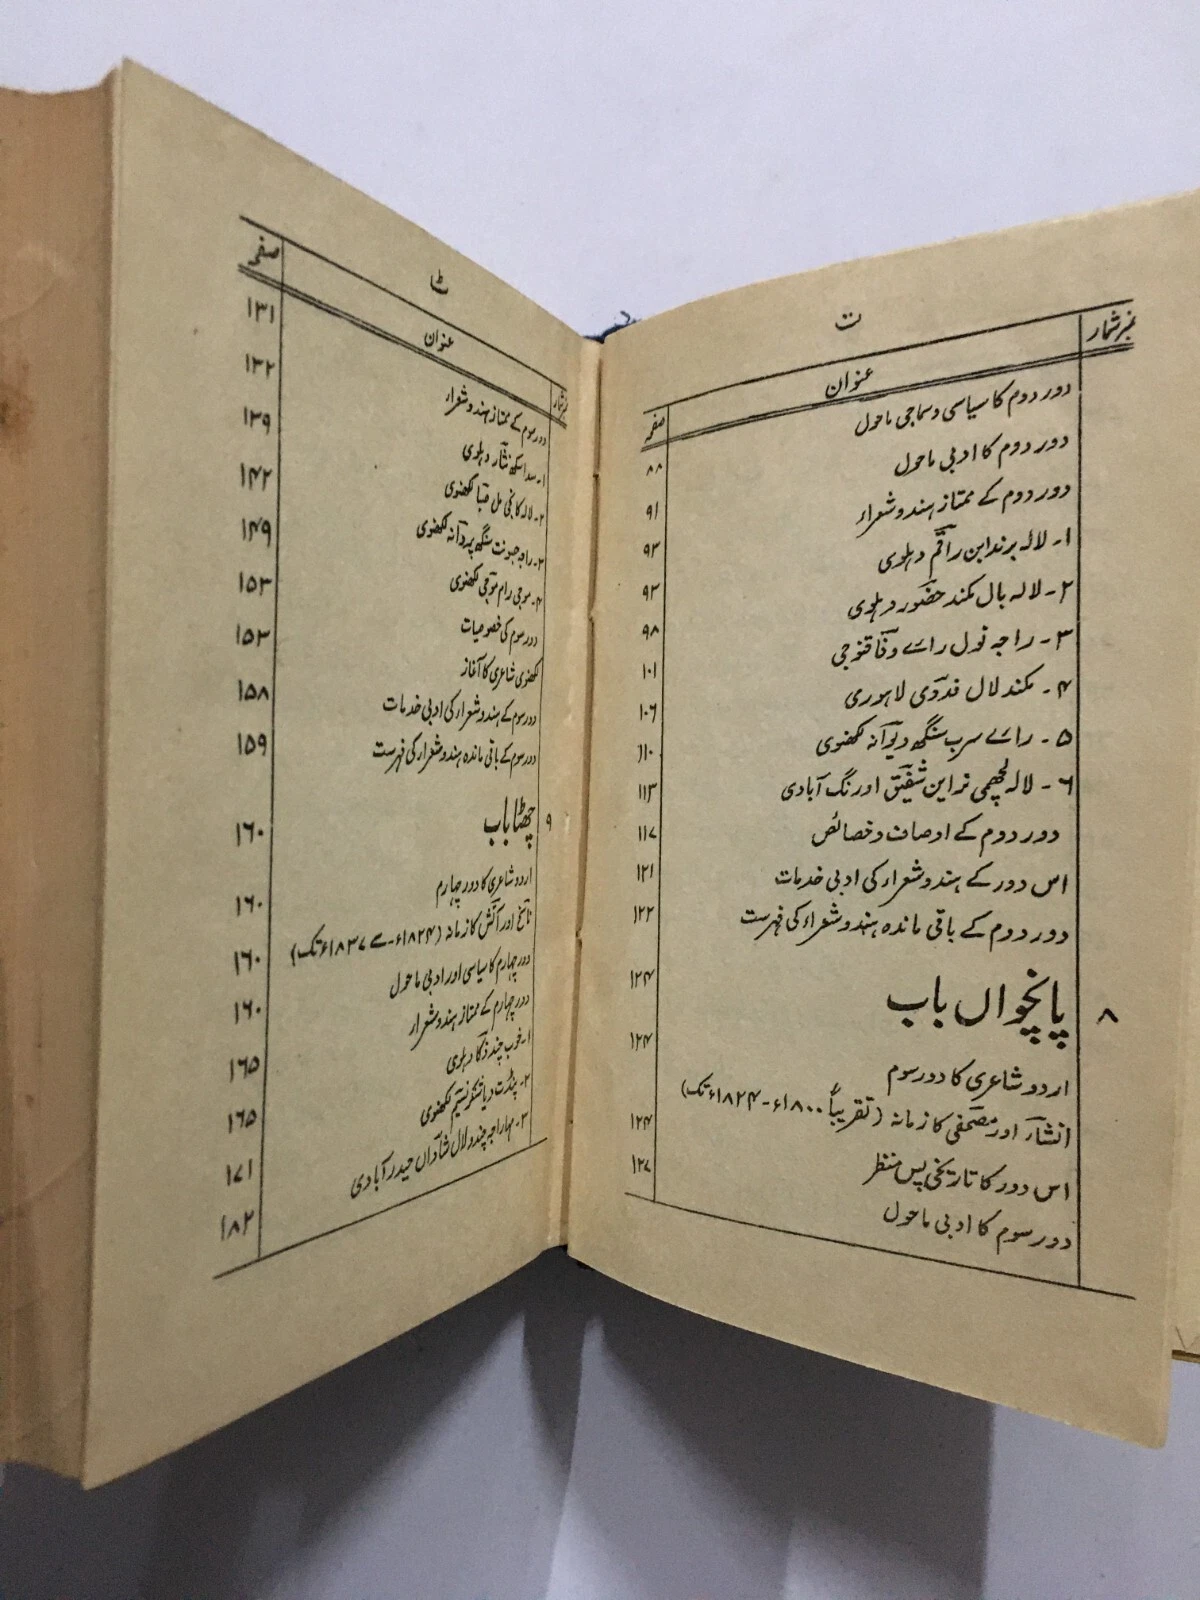 ت
نمبر شمار عنوان صفحہ
دور دوم کا سیاسی و سماجی ماحول ۸۸
دور دوم کا ادبی ماحول ۹۱
دور دوم کے ممتاز ہندو شعراء ۹۳
۱- لالہ برندابن راقم دہلوی ۹۳
۲- لالہ بال مکند حضور دہلوی ۹۸
۳- راجہ نول رائے وفا قنوجی ۱۰۱
۴- مکند لال فدوی لاہوری ۱۰۶
۵- رائے سرب سنگھ دیوانہ لکھنوی ۱۱۰
۶- لالہ لچھمی نراین شفیق اورنگ آبادی ۱۱۳
دور دوم کے اوصاف و خصائص ۱۱۷
اس دور کے ہندو شعراء کی ادبی خدمات ۱۲۱
دور دوم کے باقی ماندہ ہندو شعراء کی فہرست ۱۲۲
۸ پانچواں باب ۱۲۴
اردو شاعری کا دور سوم ۱۲۴
انشاء اور مصحفی کا زمانہ (تقریباً ۱۸۰۰ء - ۱۸۲۴ء تک)
اس دور کا تاریخی پس منظر ۱۲۴
دور سوم کا ادبی ماحول ۱۲۷
ٹ
نمبر شمار عنوان صفحہ
دور سوم کے ممتاز ہندو شعراء ۱۳۱
۱- سدا سکھ نثار دہلوی ۱۳۲
۲- لالہ کانجی مل صبا لکھنوی ۱۳۹
۳- راجہ جسونت سنگھ پروانہ لکھنوی ۱۴۲
۴- موجی رام موجی لکھنوی ۱۴۹
دور سوم کی خصوصیات ۱۵۳
لکھنوی شاعری کا آغاز ۱۵۳
دور سوم کے ہندو شعراء کی ادبی خدمات ۱۵۸
دور سوم کے باقی ماندہ ہندو شعراء کی فہرست ۱۵۹
۹ چھٹا باب ۱۶۰
اردو شاعری کا دور چہارم ۱۶۰
ناسخ اور آتش کا زمانہ (۱۸۲۴ء - سے ۱۸۳۷ء تک) ۱۶۰
دور چہارم کا سیاسی اور ادبی ماحول ۱۶۰
دور چہارم کے ممتاز ہندو شعراء ۱۶۵
۱- خوب چند ذکا دہلوی ۱۶۵
۲- پنڈت دیا شنکر نسیم لکھنوی ۱۷۱
۳- مہاراجہ چندو لال شاداں حیدرآبادی ۱۸۲